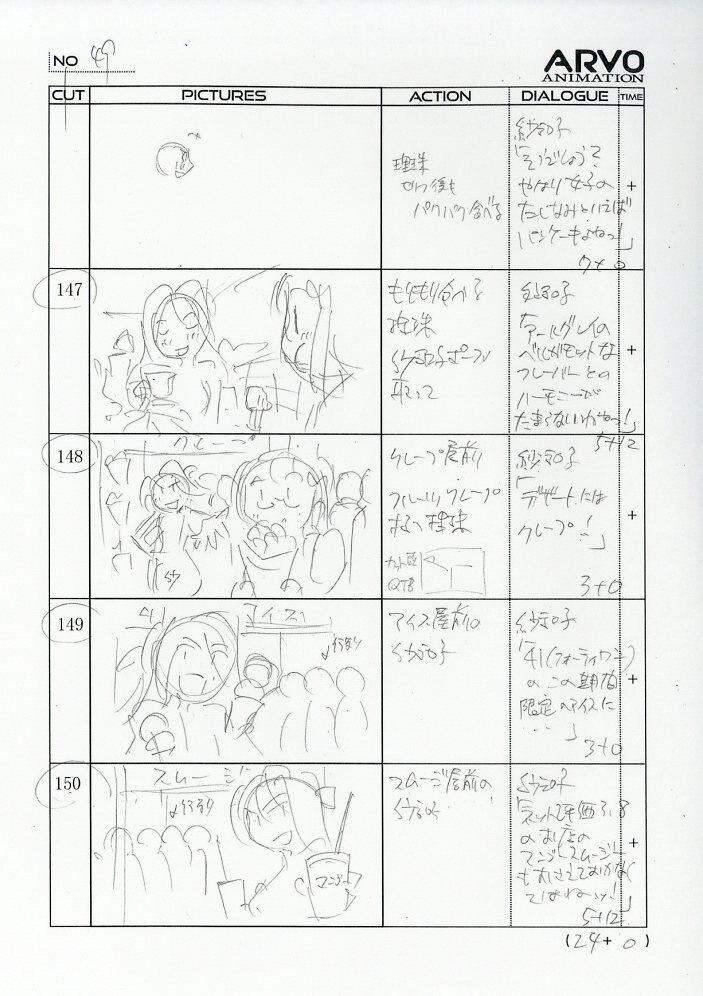 NO 49
ARVO
ANIMATION
CUT PICTURES ACTION DIALOGUE TIME
理珠
その後も
パクパク食べる
紗和子
「そうでしょう?
やはり女子の
たしなみといえば
パンケーキよねっ!」
+
7+0
147
もりもり食べる
理珠
紗和子ポーズ
取って
紗和子
「アールグレイの
ベルガモットな
フレーバーとの
ハーモニーが
たまらないわねっ!」
+
5+12
148
クレープ
クレープ屋前
フルーツクレープ
理珠
紗和子
「デザートには
クレープ!」
+
3+0
149
アイス
↙行列
アイス屋前の
紗和子
紗和子
「41(フォーティワン)
のこの期間
限定のアイスに
…」
+
3+0
150
スムージー
↙行列
スムージー屋前の
紗和子
紗和子
「ネット評価3.8
のお店の
マンゴースムージー
もおさえておかなく
てはねッ!」
+
5+12
(24+0)